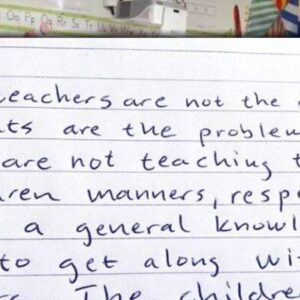 Oo Pp Qq Rr Ss Tt Uu Vv Ww
teachers are not the
ts are the problem
are not teaching t
ren manners, resp
a general knowl
to get along wi
The childre